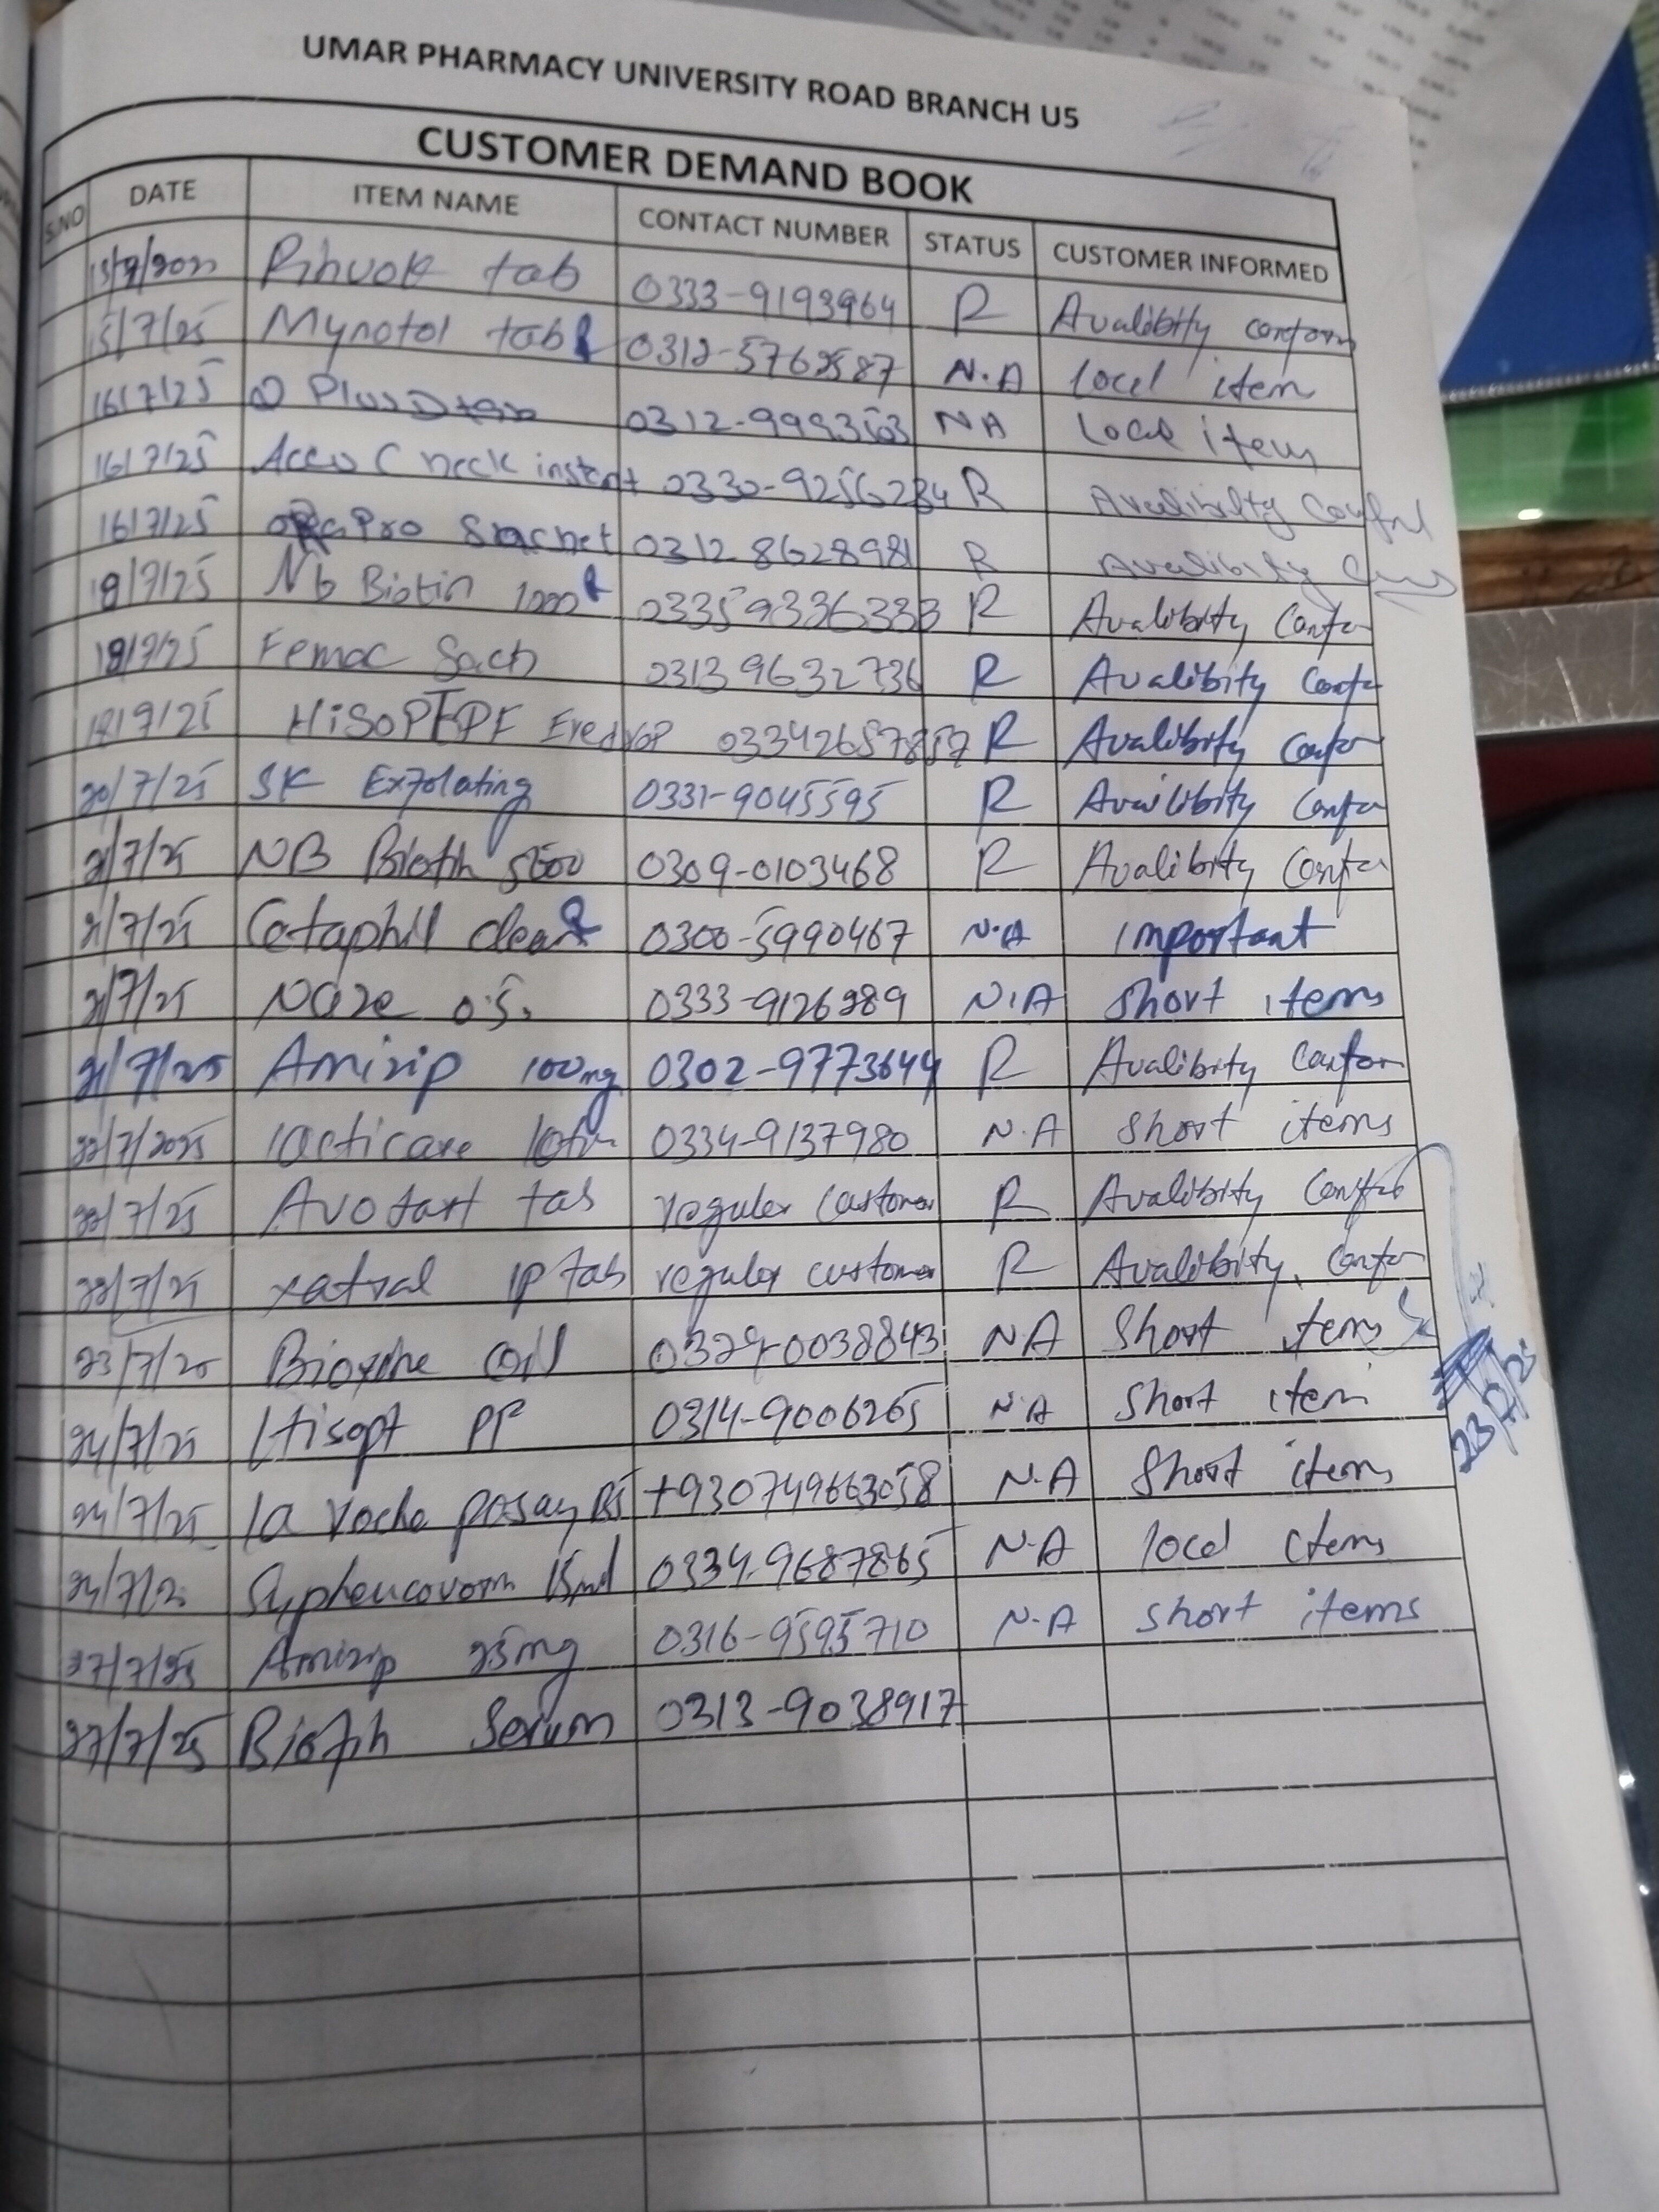 UMAR PHARMACY UNIVERSITY ROAD BRANCH U5
CUSTOMER DEMAND BOOK
S.NO DATE ITEM NAME CONTACT NUMBER STATUS CUSTOMER INFORMED
Rinvok tab 0333-9193964 R Avalibity conform
15/7/25 Mynotol tab N.A local item
16/7/25 Q Plus D NA Local item
16/7/25 Accu Check instant 0330-9256234 R Avalibilty
16/7/25 Sachet 0312 8628981 R Avalibilty
18/7/25 Nb Biotin 1000 03359336333 R Avalibity Confo
18/7/25 Femac Sach 0313 9632736 R Avalibity Confo
HiSoPT PF Eredrop R Avalibity Confo
20/7/25 SK Exfolating 0331-9045595 R Availibity Confo
21/7/25 NB Biotin 5000 0309-0103468 R Avalibity Confo
21/7/25 Cetaphil clean 0300-5990467 N.A important
21/7/25 0333-9126289 N.A Short items
21/7/25 Amirip 100mg 0302-9773644 R Avalibity Confom
22/7/2025 lacticare lotin 0334-9137980 N.A Short items
22/7/25 Avodart tab reguler Customer R Avalibity
22/7/25 xatral tab reguler customer R Avalibity. Confo
Oil NA Short items
23/7/25
24/7/25 Hisopt PF 0314-9006265 N.A Short item
24/7/25 la roche posay +930749663058 N.A Short items
15ml 0334-9687865 N.A local items
27/7/25 Amirip 25mg 0316-9595710 N.A Short items
27/7/25 Serum 0313-9038917